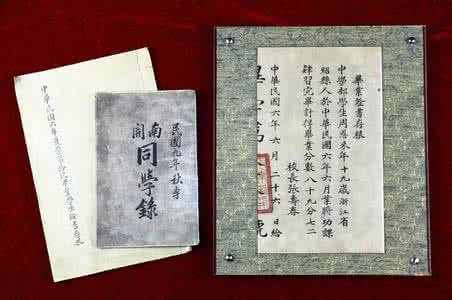 畢業證書存根
中學部學生周恩來年十九歲浙江省
紹縣人於中華民國六年六月業將功課
肄習完畢計得畢業分數八十九分七二
校長張壽春
中華民國六年六月二十六日給
號
民國九年秋季
南開
同學錄
中華民國六年夏季第拾次畢業學生證書存根